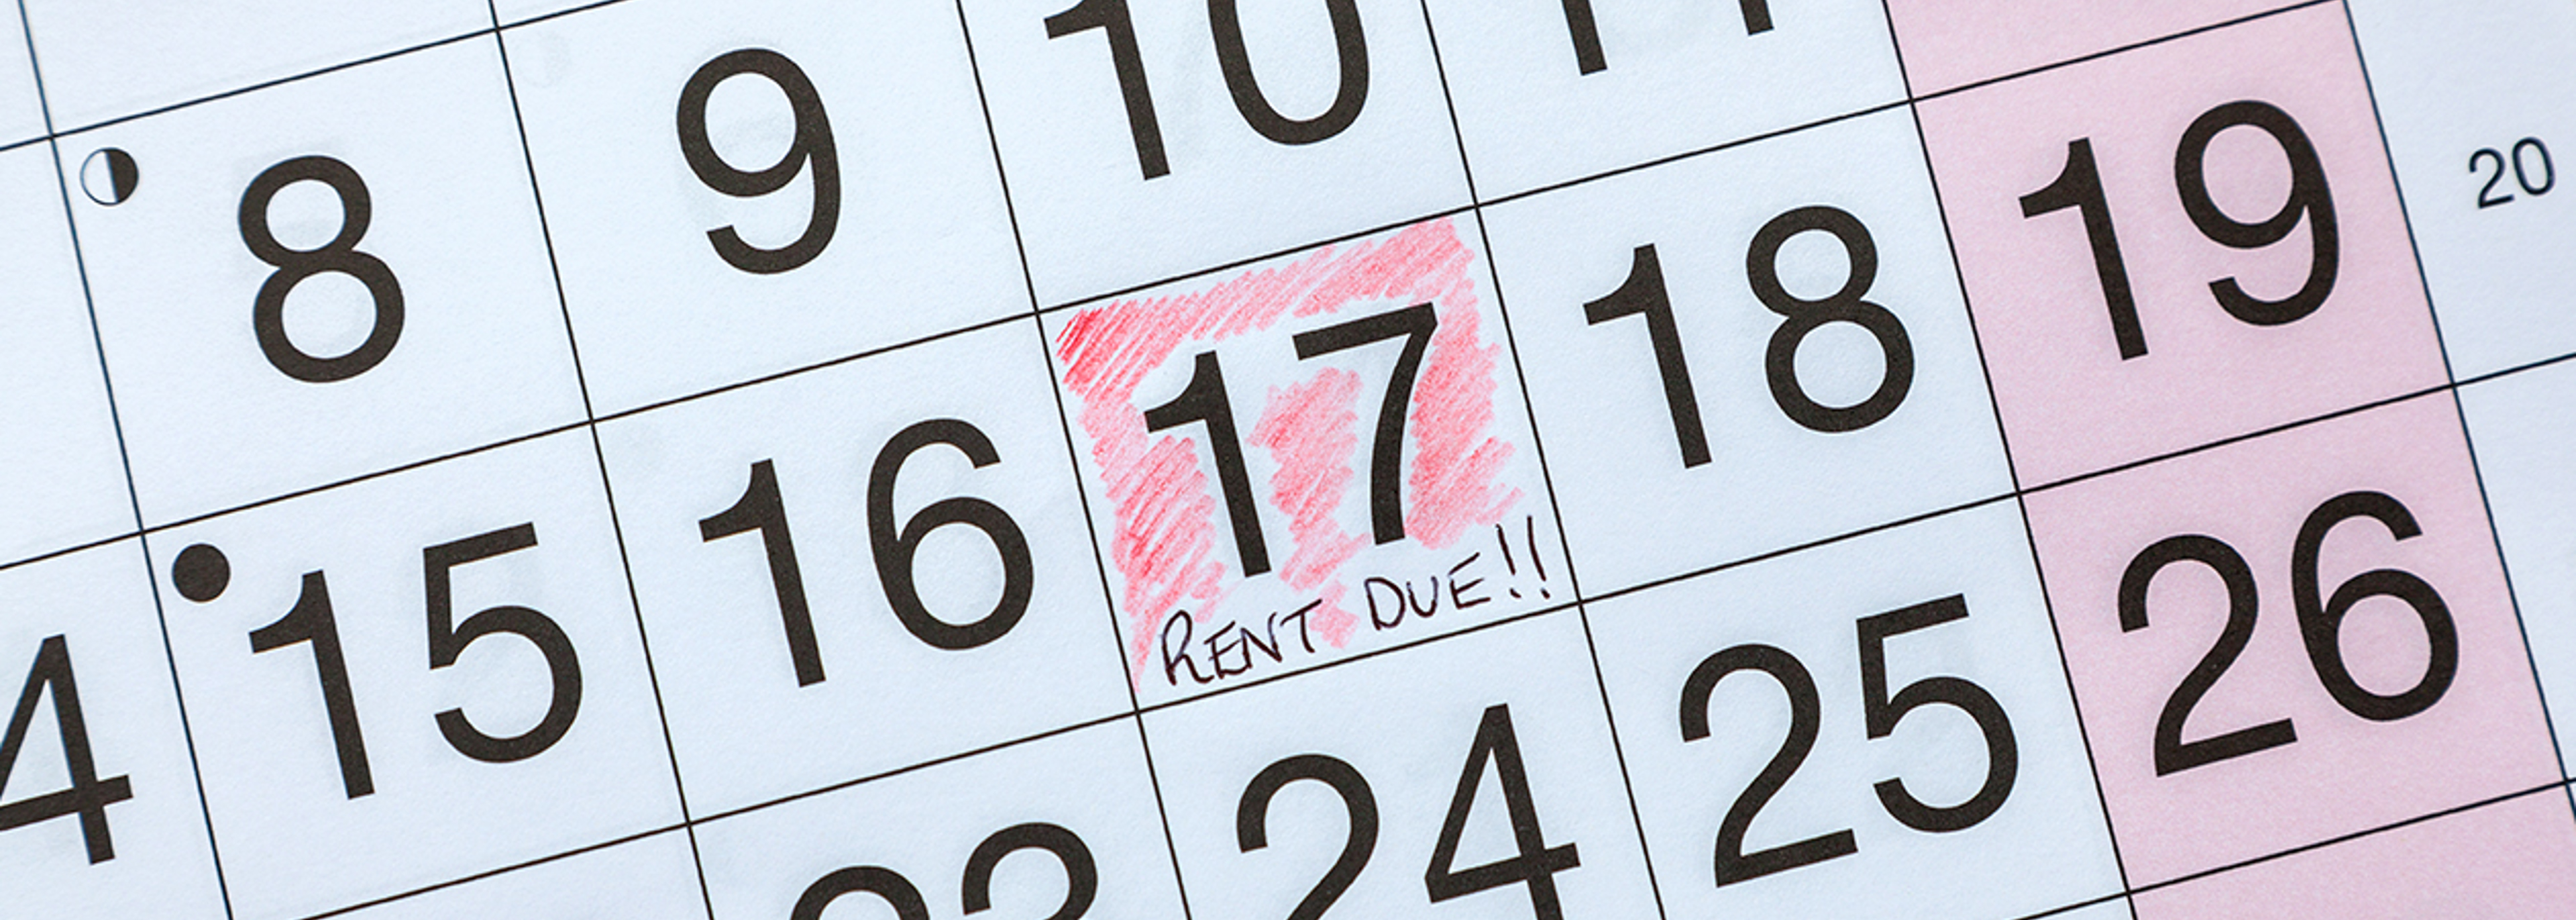 8 9 10 11
15 16 17 18 19 20
RENT DUE!!
23 24 25 26